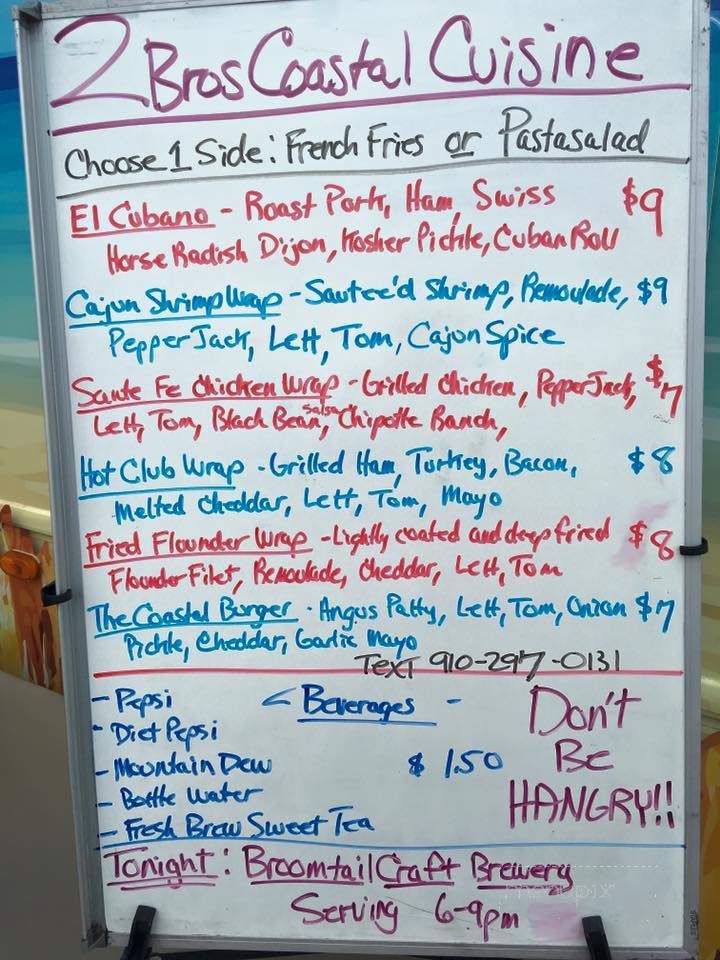 2 Bros Coastal Cuisine
Choose 1 Side: French Fries or Pastasalad
El Cubano - Roast Pork, Ham, Swiss $9
Horse Radish Dijon, Kosher Pickle, Cuban Roll
Cajun Shrimp Wrap - Sautee'd Shrimp, Remoulade, $9
Pepper Jack, Lett, Tom, Cajun Spice
Sante Fe Chicken Wrap - Grilled Chicken, Pepper Jack, $7
Lett, Tom, Black Bean Salsa, Chipotle Ranch,
Hot Club Wrap - Grilled Ham, Turkey, Bacon, $8
Melted Cheddar, Lett, Tom, Mayo
Fried Flounder Wrap - Lightly coated and deep fried $8
Flounder Filet, Remoulade, Cheddar, Lett, Tom
The Coastal Burger - Angus Patty, Lett, Tom, Onion $7
Pickle, Cheddar, Garlic Mayo
Text 910-297-0131
- Pepsi < Beverages -
- Diet Pepsi
- Mountain Dew $1.50
- Bottle Water
- Fresh Brew Sweet Tea
Don't
Be
HANGRY!!
Tonight: Broomtail Craft Brewery
Serving 6-9pm